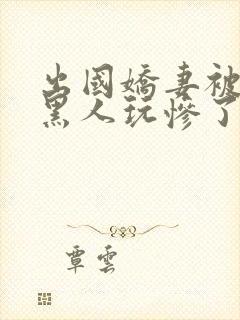 出國嬌妻被
黑人玩慘了
覃雲